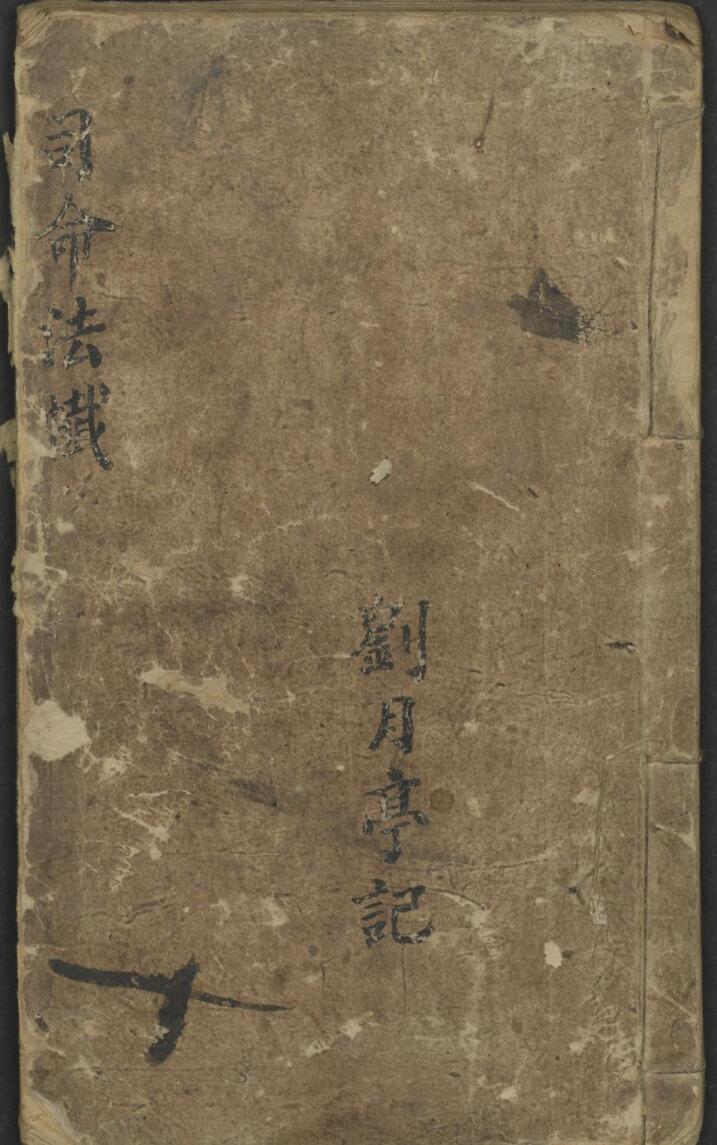 司命法懺
劉月亭記